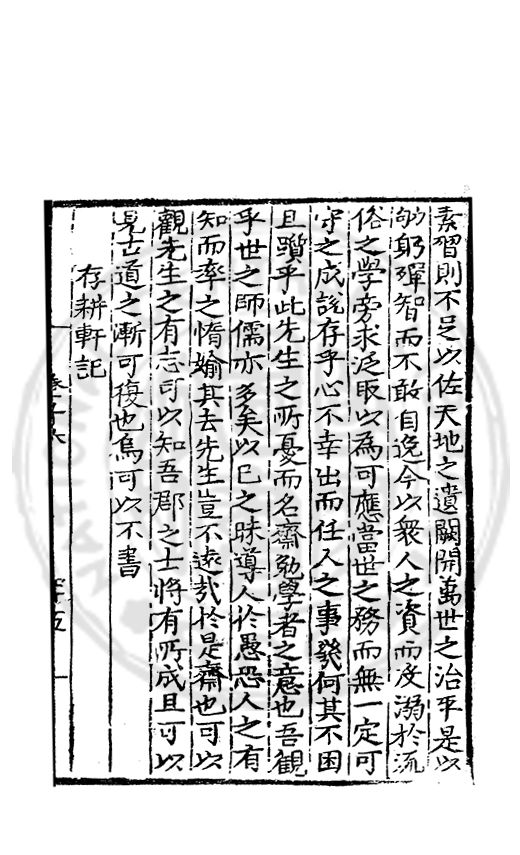 素習則不足以佐天地之遺闕開萬世之治平是以
躬殫智而不敢自逸今以衆人之資而及溺於流
俗之學旁求泛取以為可應當世之務而無一定可
守之成說存乎心不幸出而任人之事幾何其不困
且躓乎此先生之所憂而名齋勉學者之意也吾觀
乎世之師儒亦多矣以已之昧導人於愚恐人之有
知而率之惰媮其去先生豈不逺哉於是齋也可以
觀先生之有志可以知吾郡之士將有所成且可以
見古道之漸可復也烏可以不書
存耕軒記